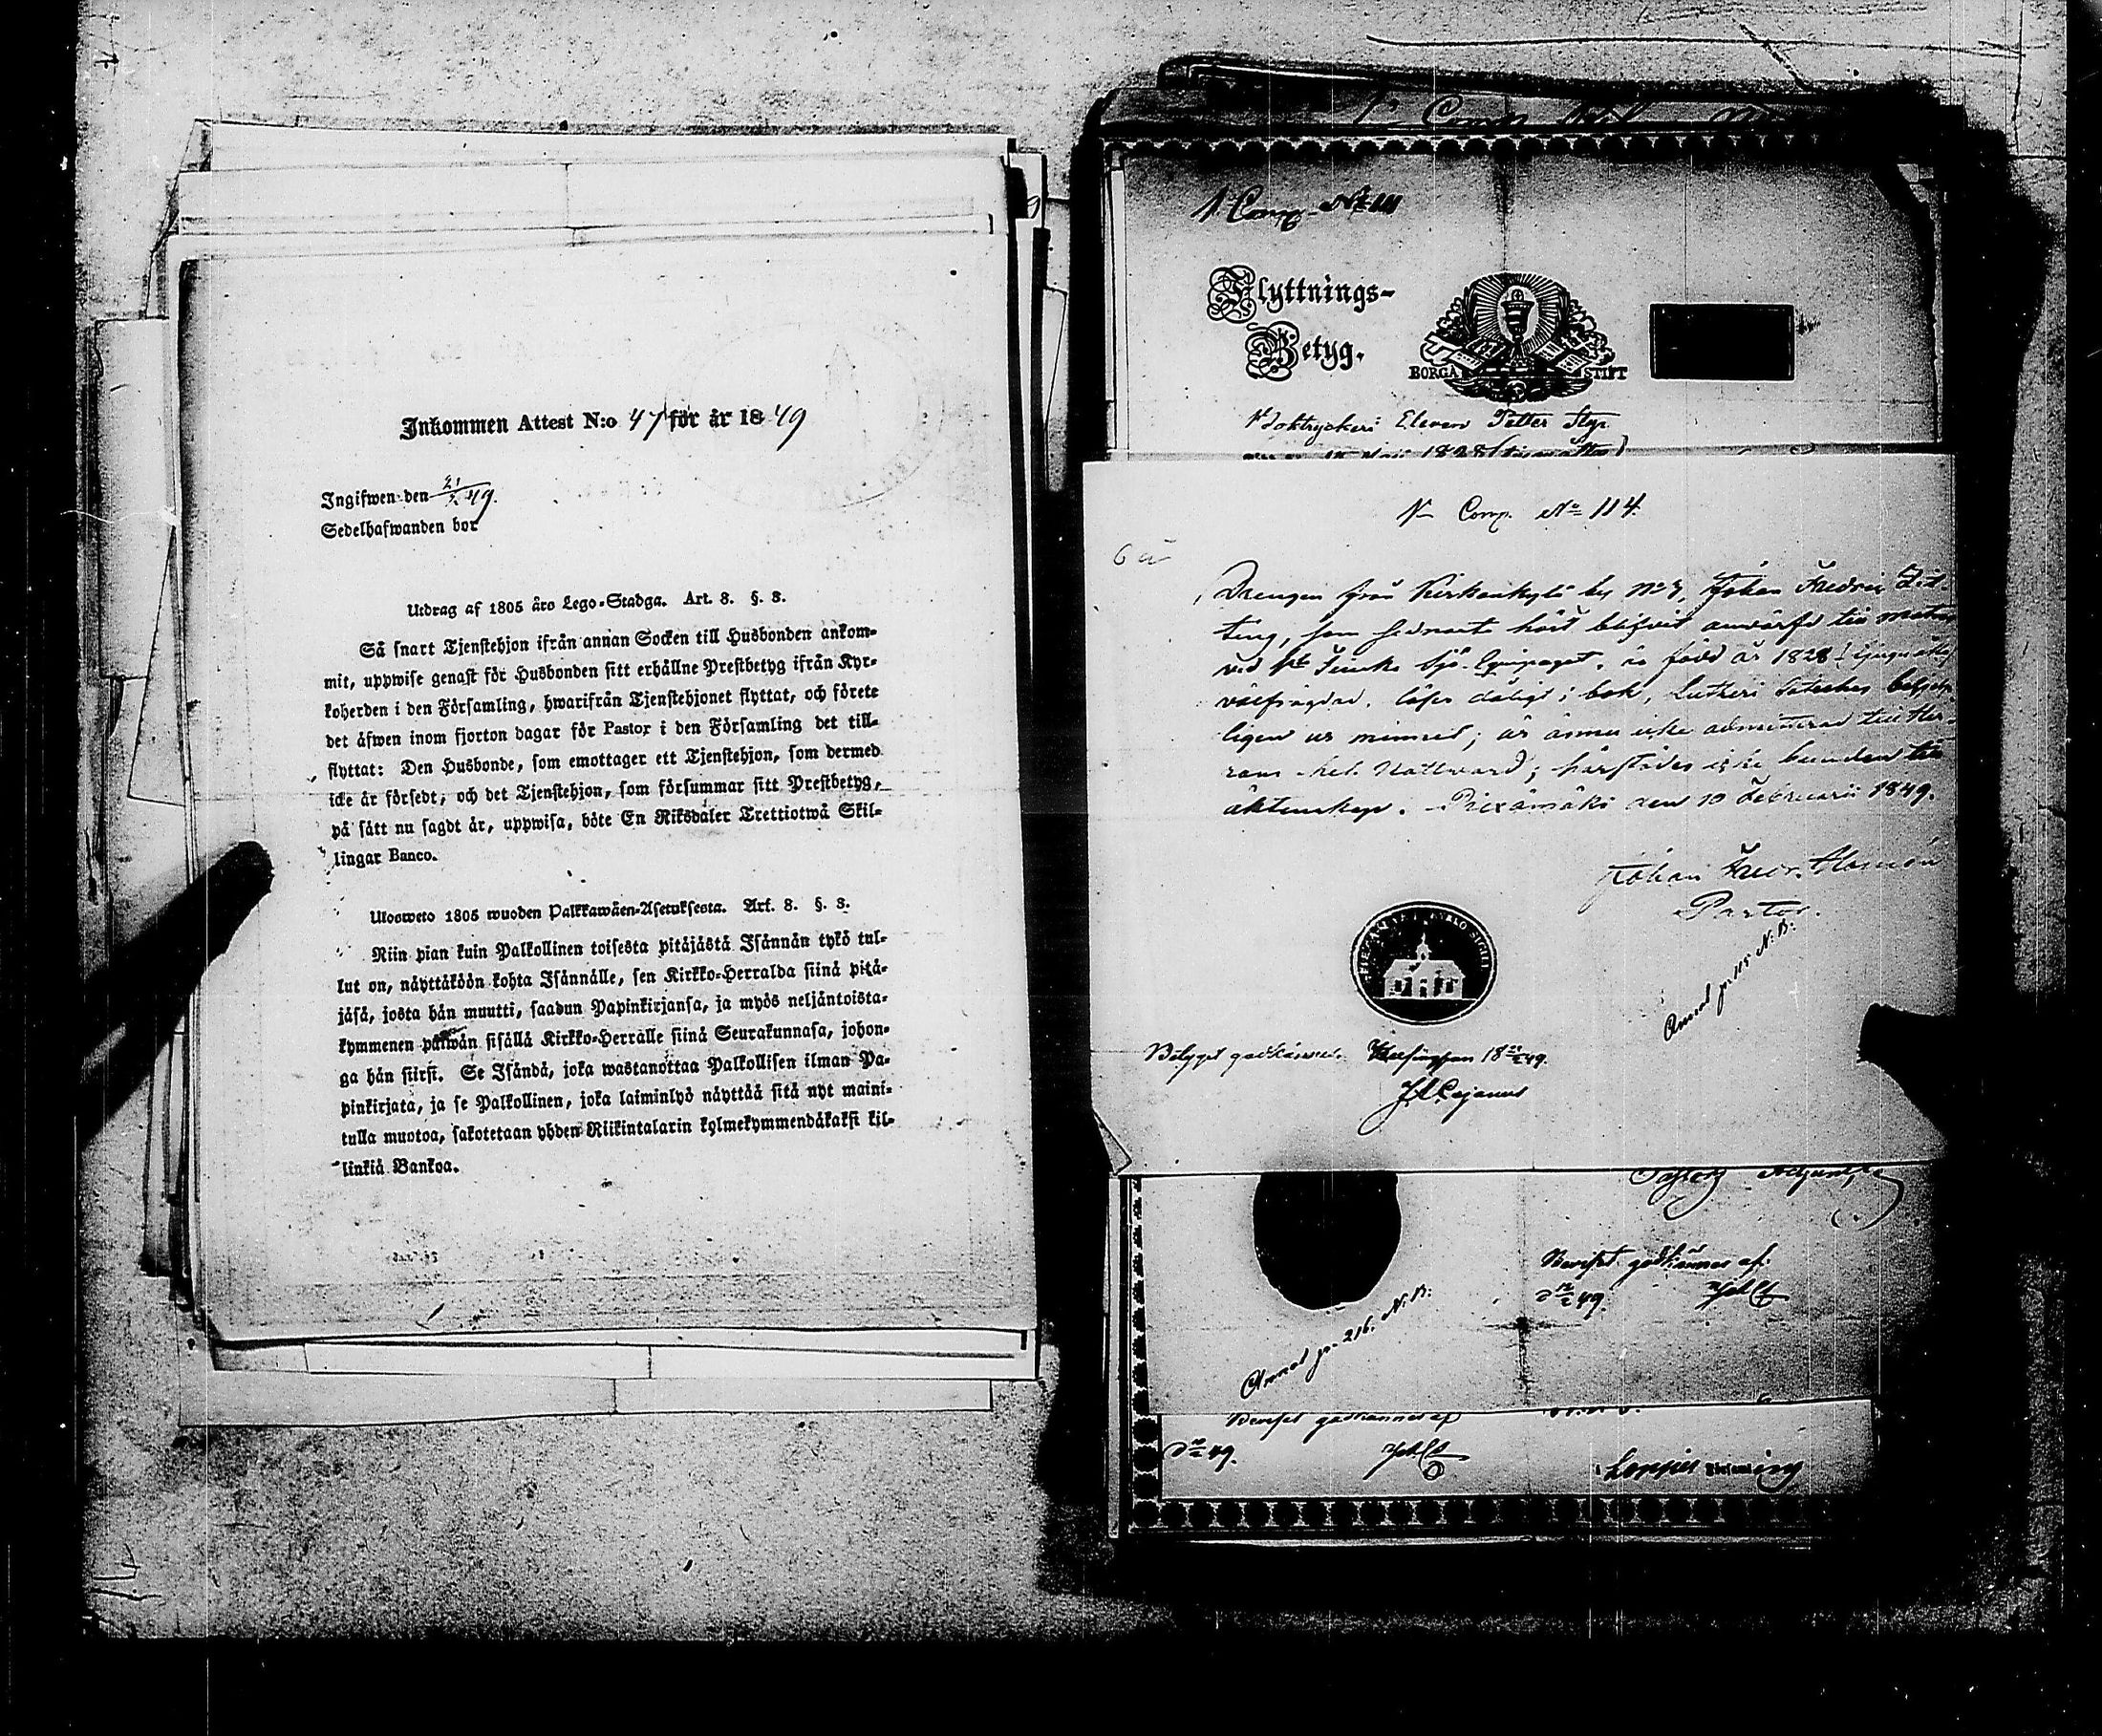 Inkommen Attest N:o 47 för år 1849
Ingifwen den 21/2 49.
Sedelhafwanden bor
Utdrag af 1805 års Lego-Stadga. Art. 8. §. 8.
Så snart Tjenstehjon ifrån annan Socken till Husbonden ankom-
mit, uppwise genast för Husbonden sitt erhållne Prestbetyg ifrån Kyr-
koherden i den Församling, hwarifrån Tjenstehjonet flyttat, och förete
det äfwen inom fjorton dagar för Pastor i den Församling det till-
flyttat: Den Husbonde, som emottager ett Tjenstehjon, som dermed
icke är försedt, och det Tjenstehjon, som försummar sitt Prestbetyg,
på sätt nu sagdt är, uppwisa, böte En Riksdaler Trettiotwå Skil-
lingar Banco.
Ulosweto 1805 wuoden Palkkawäen-Asetuksesta. Art. 8. §. 8.
Niin pian kuin Palkollinen toisesta pitäjästä Isännän tykö tul-
lut on, näyttäköön kohta Isännälle, sen Kirkko-Herralda siinä pitä-
jäsä, josta hän muutti, saadun Papinkirjansa, ja myös neljäntoista-
kymmenen päiwän sisällä Kirkko-Herralle siinä Seurakunnasa, johon-
ga hän siirsi. Se Isändä, joka wastanottaa Palkollisen ilman Pa-
pinkirjata, ja se Palkollinen, joka laiminlyö näyttää sitä nyt maini-
tulla muotoa, sakotetaan yhden Riikintalarin kolmekymmendäkaksi kil-
linkiä Bankoa.
1 Comp.
Flyttnings-
Betyg.
BORGÅ STIFT
Boktryckeri Eleven Petter
1 Comp. No 114.
Drengen från Kirkonkylä by No 3, Johan Fredric
ting, som sednaste höst blifvit anvärfd till
ved Sjö-Equipaget, är född år 1828
välfrägdad, läser dåligt i bok, Lutheri Cateches
ligen ur minnet; är ännu icke admitterad till Her-
rans Hel. Nattvard; härstädes icke bunden till
äktenskap. Pieksämäki den 10 Februarii 1849.
Johan Fredr.
Pastor.
Annot. p. 115 N. B.
Betyget godkännes. Helsingfors 18 21/2 49.
J A Cajanus
Pastors Adjunct
Beviset godkännes af:
49.
Annot p. 216. N. B.
Beviset godkännes af
49.
Loppis